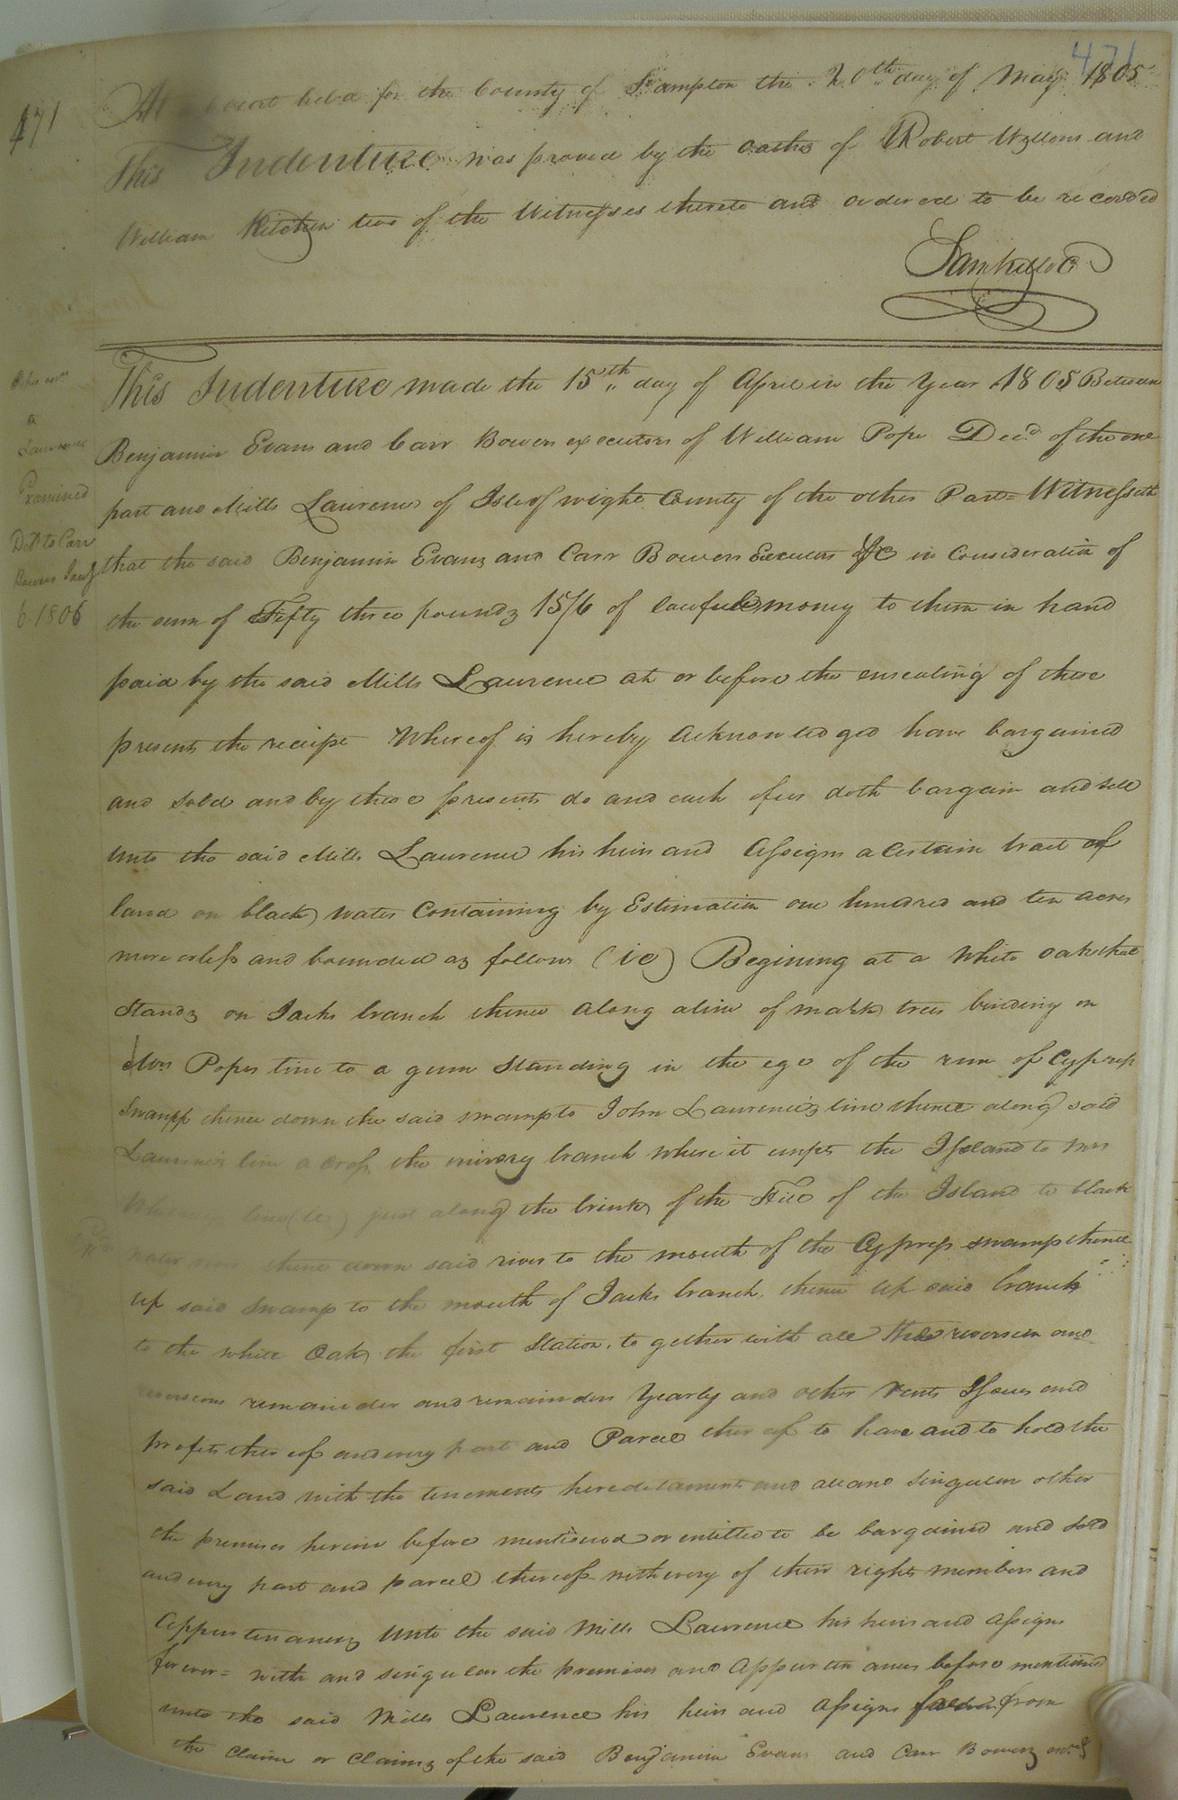 471
471
At a Court held for the County of Sampton the 20th day of May 1805
This Indenture was proved by the oaths of Robert Wellons and
William Kitchen two of the Witnesses thereto and ordered to be recorded
Sam Kello C
This Indenture made the 15th day of April in the Year 1805 Between
Benjamin Evans and Carr Bowers executors of William Pope Decd of the one
part and Mills Laurence of Isle of wight County of the other Part = Witnesseth
that the said Benjamin Evans and Carr Bowers Executors &C in Consideration of
the sum of Fifty three pounds 15/6 of lawful money to them in hand
paid by the said Mills Laurence at or before the ensealing of these
presents the receipt Whereof is hereby Acknowledged have bargained
and sold and by these presents do and each of us doth bargain and sell
unto the said Mills Laurence his heirs and Assigns a certain tract of
land on black water Containing by Estimation one hundred and ten acres
more or less and bounded as follows (ie) Begining at a White oak that
Stands on Jacks branch thence along a line of mark trees binding on
Mrs Popes line to a gum Standing in the ege of the run of Cypress
Swamp thence down the said swamp to John Laurence's line thence along said
Laurence's line a cross the mirery branch where it emps the Island to Mrs
line (ie) just along the brink of the Hill of the Island to black
water thence down said river to the mouth of the Cypress swamp thence
up said Swamp to the mouth of Jacks branch, thence up said branch
to the white Oak the first Station, to gether with all the reversion and
reversions remainder and remainders Yearly and other rents Issues and
profits there of and every part and Parcel there of to have and to hold the
said Land with the tenements heredetaments and all and Singular other
the premises herein before mentioned or entitled to be bargained and sold
and every part and parcel thereof with every of their rights members and
Appurtenances Unto the said Mills Laurence his heirs and assigns
for ever = with and singular the premises and Appurtenances before mentioned
unto the said Mills Laurence his heirs and Assigns from
the Claim or Claims of the said Benjamin Evans and Carr Bowers
a
Laurence
Examined
Dd to Carr
Bowers
6 1806